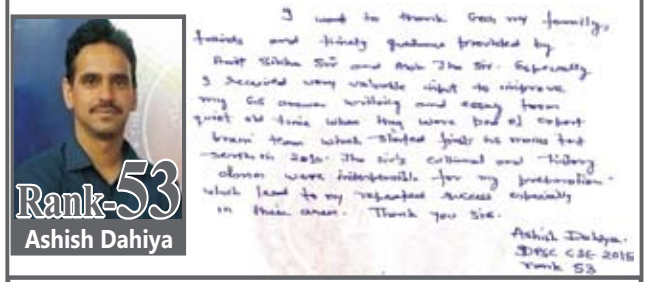 I want to thank God, my familly,
friends and timely guidance provided by
Amit Sinha Sir and Alok Jha Sir. Especially
I received very valuable input to improve
my GS answer writing and essay from
quiet old time when they were part of expert
brain team which started first GS mains test
series in 2010. The Sir's cultural and history
classes were for my preparation
which lead to my repeated success especially
in their area. Thank you Sir.
Ashish Dahiya.
UPSC CSE-2015
rank 53
Rank-53
Ashish Dahiya